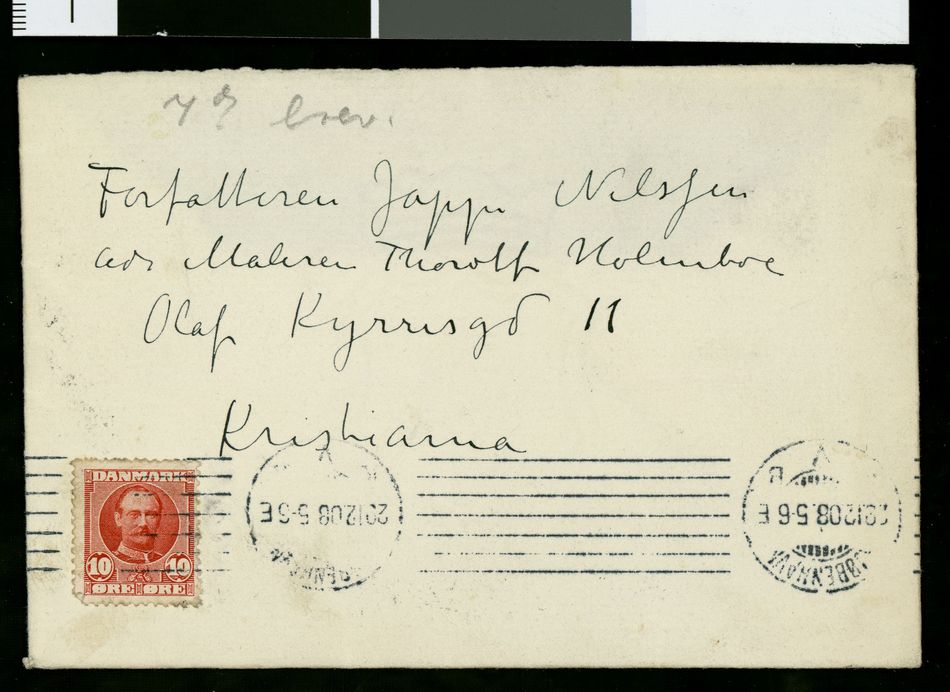 7 de brev.
Forfatteren Jappe Nilssen
adr Maleren Thorolf Holmboe
Olaf Kyrresgd 11
Kristiania
DANMARK
10 10
ØRE ØRE
12.08.5-6 E
12.08.5-6 E
KØBENHAVN